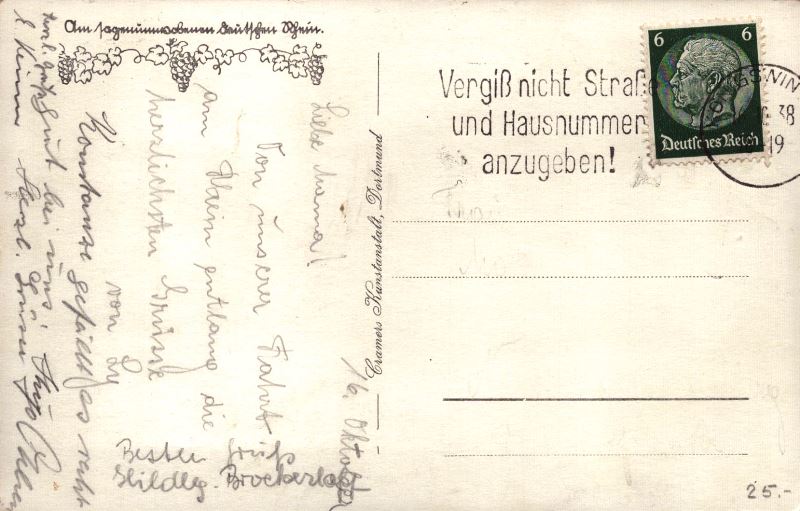 Am sagenumwobenen deutschen Rhein.
16. Oktober
Liebe Mama!
Von unserer Fahrt
am Rhein entlang die
herzlichsten Grüsse
von
Konstanze gefällt es recht
gut bei uns!
Herzl. Grüsse
Besten Gruß
Hildeg. Brockerhoff
Cramers Kunstanstalt, Dortmund
Vergiß nicht Straße
und Hausnummer
anzugeben!
6 6
Deutsches Reich
38
19
25.-